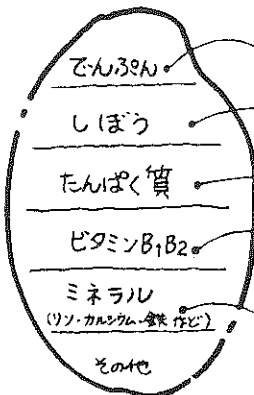 でんぷん
しぼう
たんぱく質
ビタミンB₁B₂
ミネラル
(リン・カルシウム・鉄など)
その他